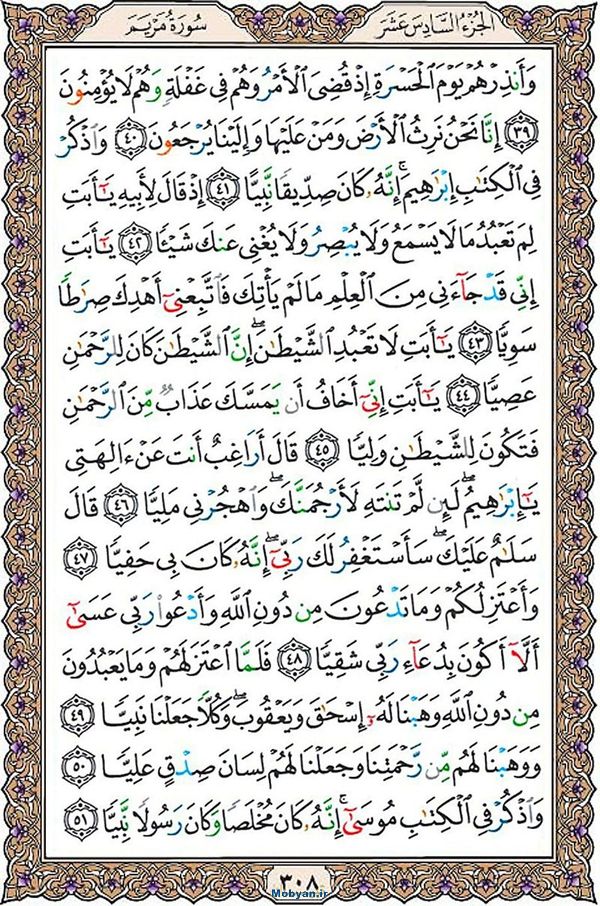 الجزء السادس عشر
سورة مريم
وَأَنذِرْهُمْ يَوْمَ الْحَسْرَةِ إِذْ قُضِيَ الْأَمْرُ وَهُمْ فِي غَفْلَةٍ وَهُمْ لَا يُؤْمِنُونَ
﴿٣٩﴾ إِنَّا نَحْنُ نَرِثُ الْأَرْضَ وَمَنْ عَلَيْهَا وَإِلَيْنَا يُرْجَعُونَ ﴿٤٠﴾ وَاذْكُرْ
فِي الْكِتَابِ إِبْرَاهِيمَ ۚ إِنَّهُ كَانَ صِدِّيقًا نَّبِيًّا ﴿٤١﴾ إِذْ قَالَ لِأَبِيهِ يَا أَبَتِ
لِمَ تَعْبُدُ مَا لَا يَسْمَعُ وَلَا يُبْصِرُ وَلَا يُغْنِي عَنكَ شَيْئًا ﴿٤٢﴾ يَا أَبَتِ
إِنِّي قَدْ جَاءَنِي مِنَ الْعِلْمِ مَا لَمْ يَأْتِكَ فَاتَّبِعْنِي أَهْدِكَ صِرَاطًا
سَوِيًّا ﴿٤٣﴾ يَا أَبَتِ لَا تَعْبُدِ الشَّيْطَانَ ۖ إِنَّ الشَّيْطَانَ كَانَ لِلرَّحْمَٰنِ
عَصِيًّا ﴿٤٤﴾ يَا أَبَتِ إِنِّي أَخَافُ أَن يَمَسَّكَ عَذَابٌ مِّنَ الرَّحْمَٰنِ
فَتَكُونَ لِلشَّيْطَانِ وَلِيًّا ﴿٤٥﴾ قَالَ أَرَاغِبٌ أَنتَ عَنْ آلِهَتِي
يَا إِبْرَاهِيمُ ۖ لَئِن لَّمْ تَنتَهِ لَأَرْجُمَنَّكَ ۖ وَاهْجُرْنِي مَلِيًّا ﴿٤٦﴾ قَالَ
سَلَامٌ عَلَيْكَ ۖ سَأَسْتَغْفِرُ لَكَ رَبِّي ۖ إِنَّهُ كَانَ بِي حَفِيًّا ﴿٤٧﴾
وَأَعْتَزِلُكُمْ وَمَا تَدْعُونَ مِن دُونِ اللَّهِ وَأَدْعُو رَبِّي عَسَىٰ
أَلَّا أَكُونَ بِدُعَاءِ رَبِّي شَقِيًّا ﴿٤٨﴾ فَلَمَّا اعْتَزَلَهُمْ وَمَا يَعْبُدُونَ
مِن دُونِ اللَّهِ وَهَبْنَا لَهُ إِسْحَاقَ وَيَعْقُوبَ ۖ وَكُلًّا جَعَلْنَا نَبِيًّا ﴿٤٩﴾
وَوَهَبْنَا لَهُم مِّن رَّحْمَتِنَا وَجَعَلْنَا لَهُمْ لِسَانَ صِدْقٍ عَلِيًّا ﴿٥٠﴾
وَاذْكُرْ فِي الْكِتَابِ مُوسَىٰ ۚ إِنَّهُ كَانَ مُخْلَصًا وَكَانَ رَسُولًا نَّبِيًّا ﴿٥١﴾
٣٠٨
Mobyan.ir